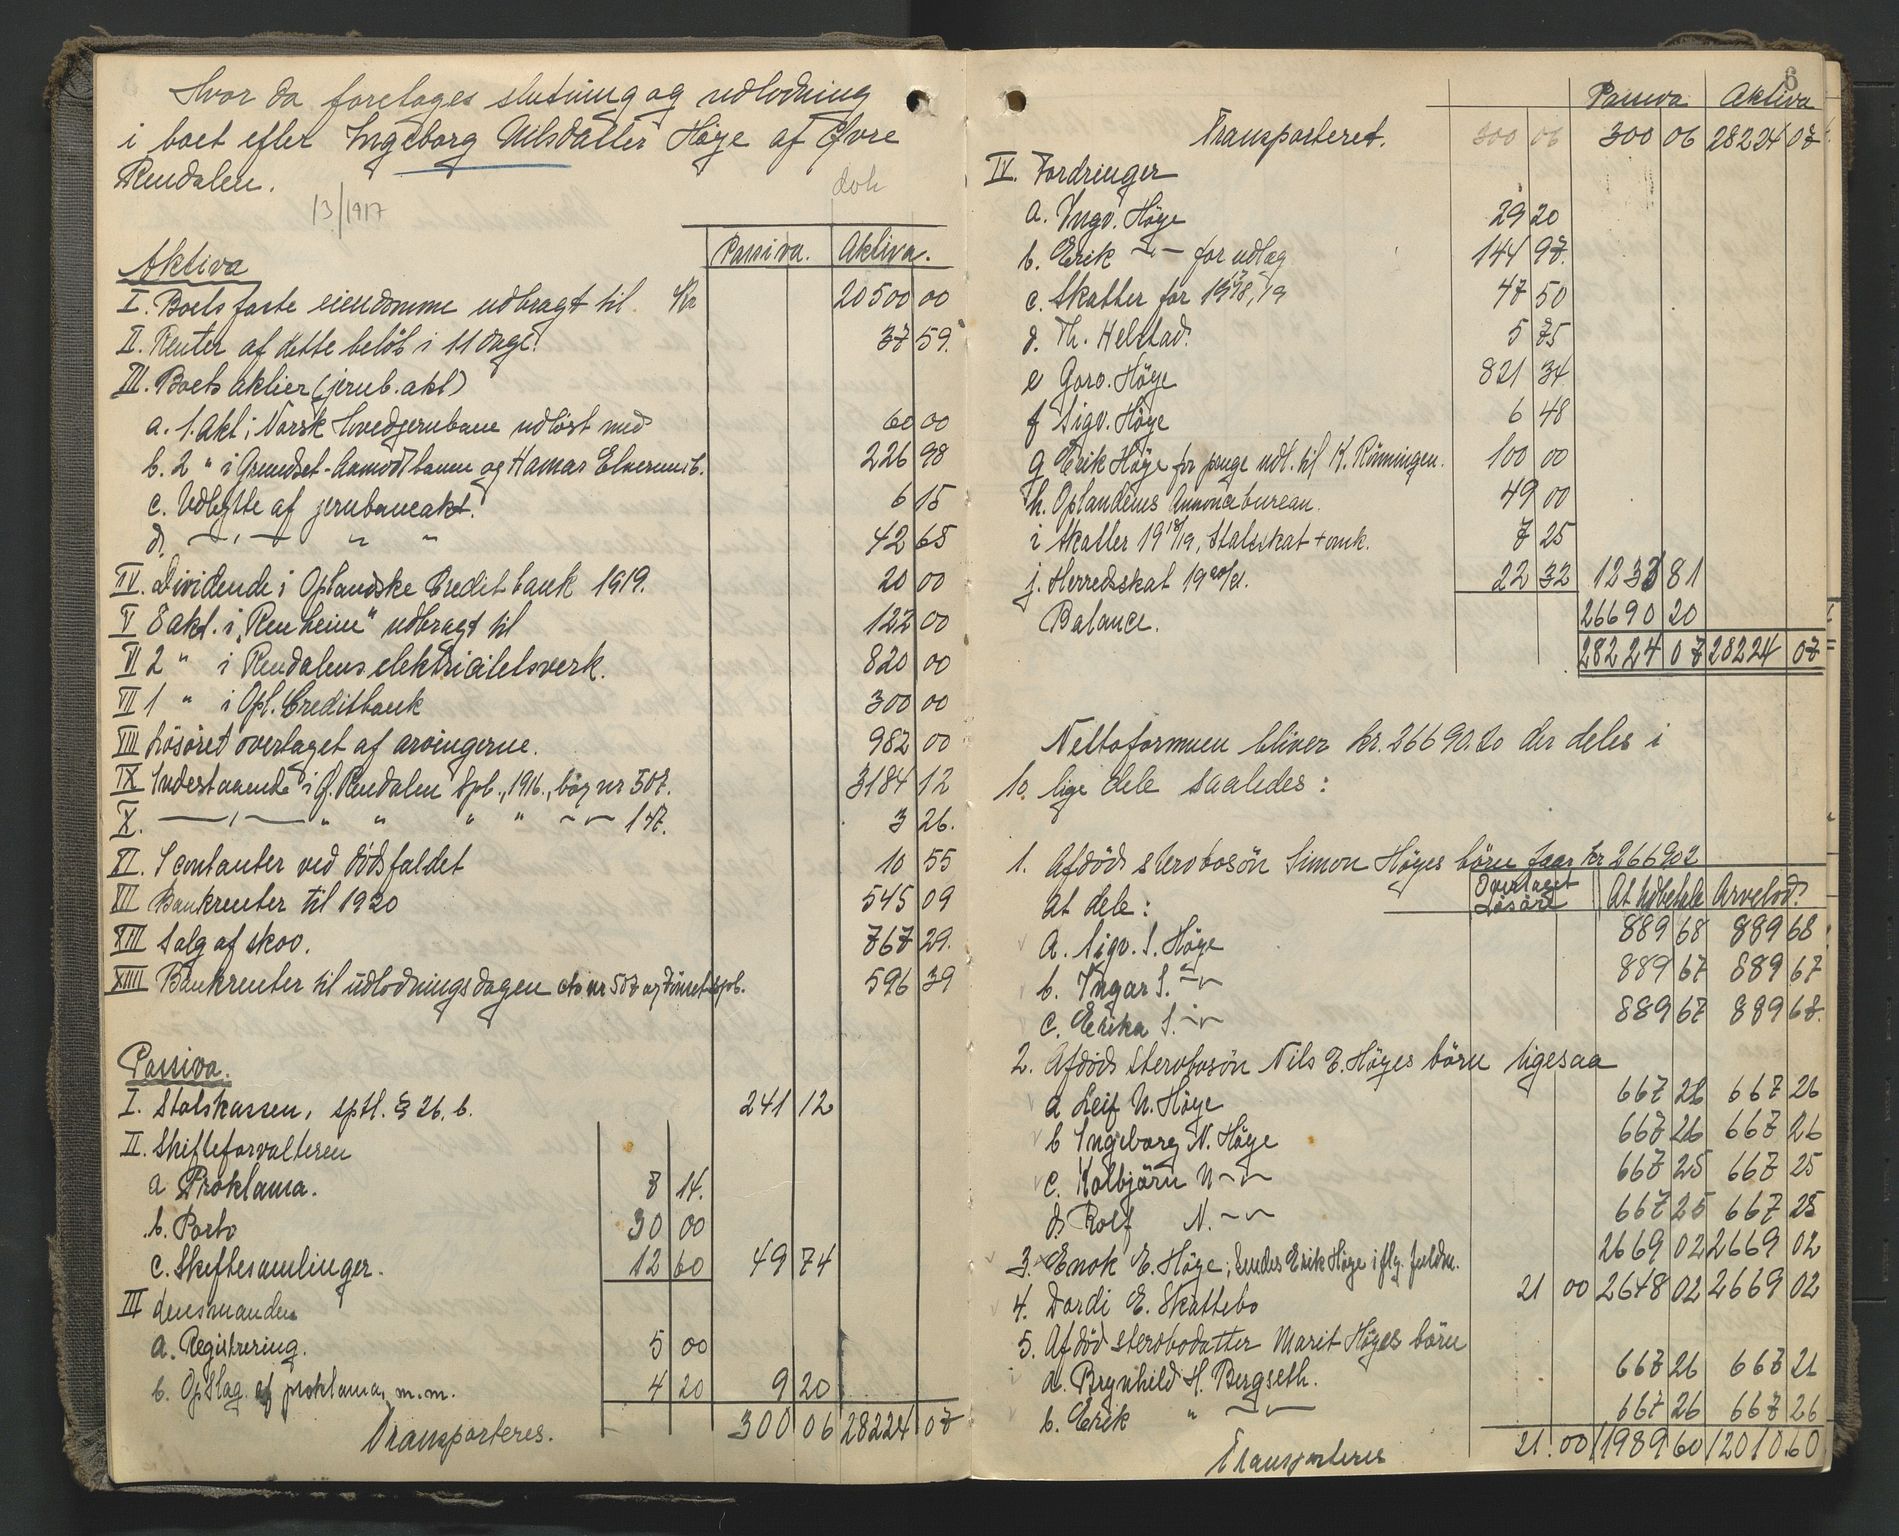 Hvor da foretages slutning og udlodning
i boet efter Ingeborg Nilsdatter Høye af Øvre
Rendalen.
13/1917
dok
Passiva. Aktiva.
Aktiva
I. Boets faste eiendomme udbragt til Kr 20500 00
II. Renter af dette beløb i 11 dage. 37 59.
III. Boets aktier (jernb. akt)
a. 1. Akt i Norsk Hovedjernbane udløst med 60 00
b. 2 " i Grundset-Aamodtbanen og Hamar Elverumb. 226 98
c. Udbytte af jernbaneakt. 6 15
d. —„— " " 42 65
IV. Dividende i Oplandske Creditbank 1919. 20 00
V 8 akt. i "Renheim" udbragt til 122 00
VI 2 " i Rendalens elektricitetsverk. 820 00
VII 1 " i Opl. Creditbank 300 00
VIII Løsøret overtaget af arvingerne. 982 00
IX Indestaaende i Ø. Rendalen Spb., 1916., bog nr 507. 3184 12
X. —„— " " " " —„— 147. 3 26.
XI. I contanter ved dødsfaldet 10 55
XII Bankrenter til 1920 545 09
XIII Salg af skov. 767 29.
XIIII Bankrenter til udlodningsdagen cto nr 507 og Tönset Spb. 596 39
Passiva.
I. Statskassen, sptl. § 26. b. 241 12
II. Skifteforvalteren
a Proklama. 7 14.
b. Porto 30 00
c. Skiftesamlinger. 12 60 49 74
III Lensmanden
a. Registrering. 5 00
b. Opslag af proklama, m.m. 4 20 9 20
Transporteres. 300 06 28224 07
6
Passiva Aktiva
Transporteret. 300 06 300 06 28224 07
IV. Fordringer
a. Ingv. Höye 29 20
b. Erik —„— for udlæg 144 97.
c. Skatter for 19 17/18, 19 47 50
d. Th. Helstad. 5 75
e Goro. Höye 821 34
f Sigv. Höye 6 48
g Erik Höye for penge udl. til K. Rönningen. 100 00
h. Oplandenes Annoncebureau. 49 00
i Skatter 19 18/19, Statsskat + omk. 7 25
j. Herredsskat 19 20/21. 22 32 1233 81
Balance. 26690 20
28224 07 28224 07
Nettoformuen bliver kr. 26690.20 der deles i
10 lige dele saaledes:
1. Afdöd stervbosön Simon Höyes börn faar kr 2669 02
At dele: Overtaget Løsøre At udbetale Arvelod.
a. Sigv. S. Höye 889 68 889 68
b. Ingar S. —„— 889 67 889 67
c. Erika S. —„— 889 67 889 67.
2. Afdöd stervbosön Nils E. Höyes börn ligesaa
a Leif N. Höye 667 26 667 26
b Ingeborg N. Höye 667 26 667 26
c. Kolbjörn N —„— 667 25 667 25
d. Rolf N. —„— 667 25 667 25
3. Enok E. Höye, sendes Erik Höye iflg. fuldm. 2669 02 2669 02
4. Dordi E. Skattebo 21 00 2648 02 2669 02
5. Afdöd stervbodatter Marit Höyes börn
a. Brynhild H. Bergseth. 667 26 667 26
b. Erik " —„— 667 26 667 26
Transporteres 21.00 11989 60 12010.60